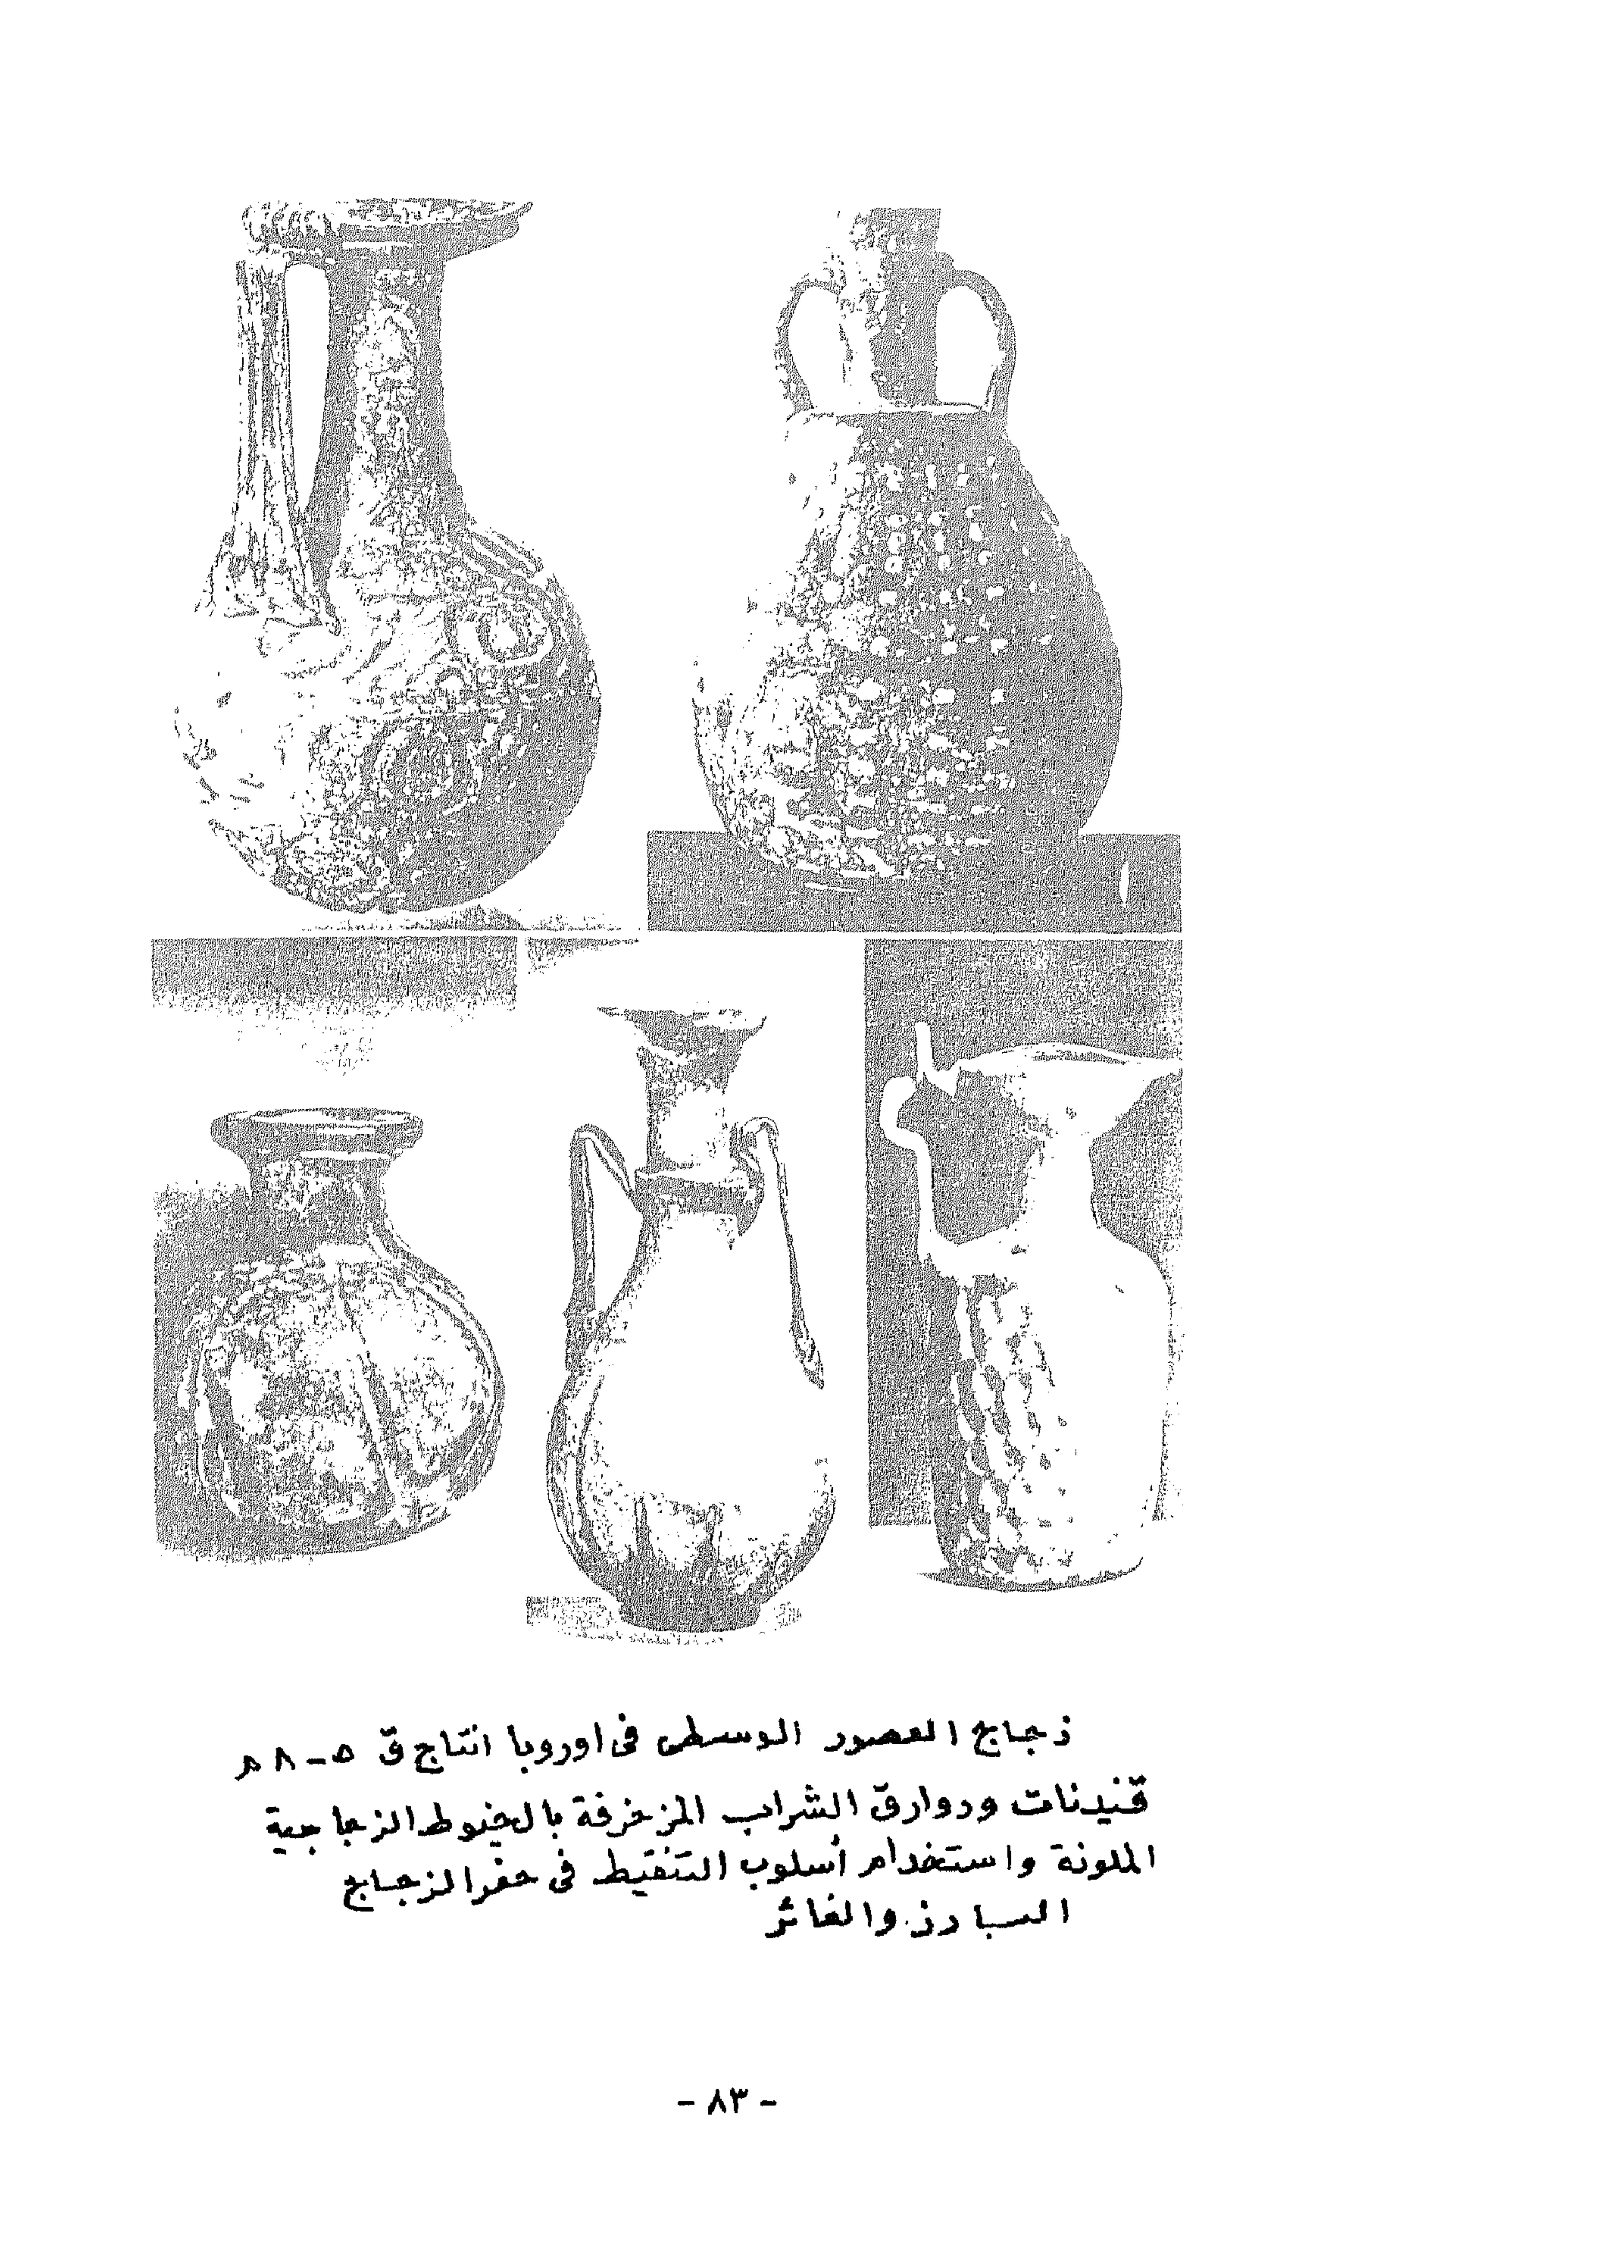 زجاج العصور الوسطى فى اوروبا انتاج ق ٥ - ٨ م
قنينات ودوارق الشراب المزخرفة بالخيوط الزجاجية
الملونة واستخدام أسلوب التنقيط فى حفر الزجاج
البارز والغائر
- ٨٣ -